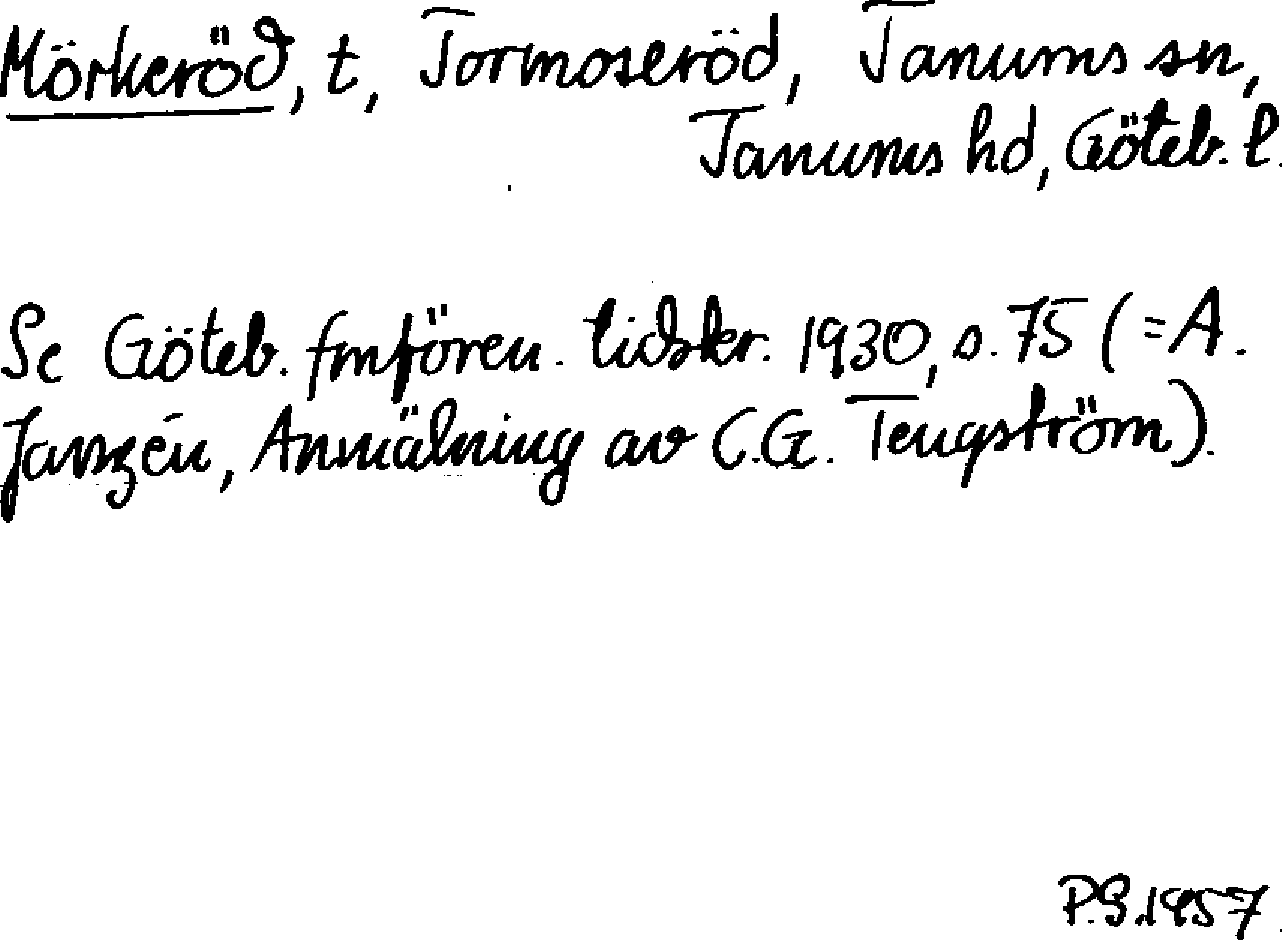 Mörkeröd, t, Tormoseröd, Tanums sn,
Tanums hd, Göteb. l.
Se Göteb. fmfören. tidskr. 1930, s. 75 (=A.
Janzén, Anmälning av C.G. Tengström).
P.G.1957